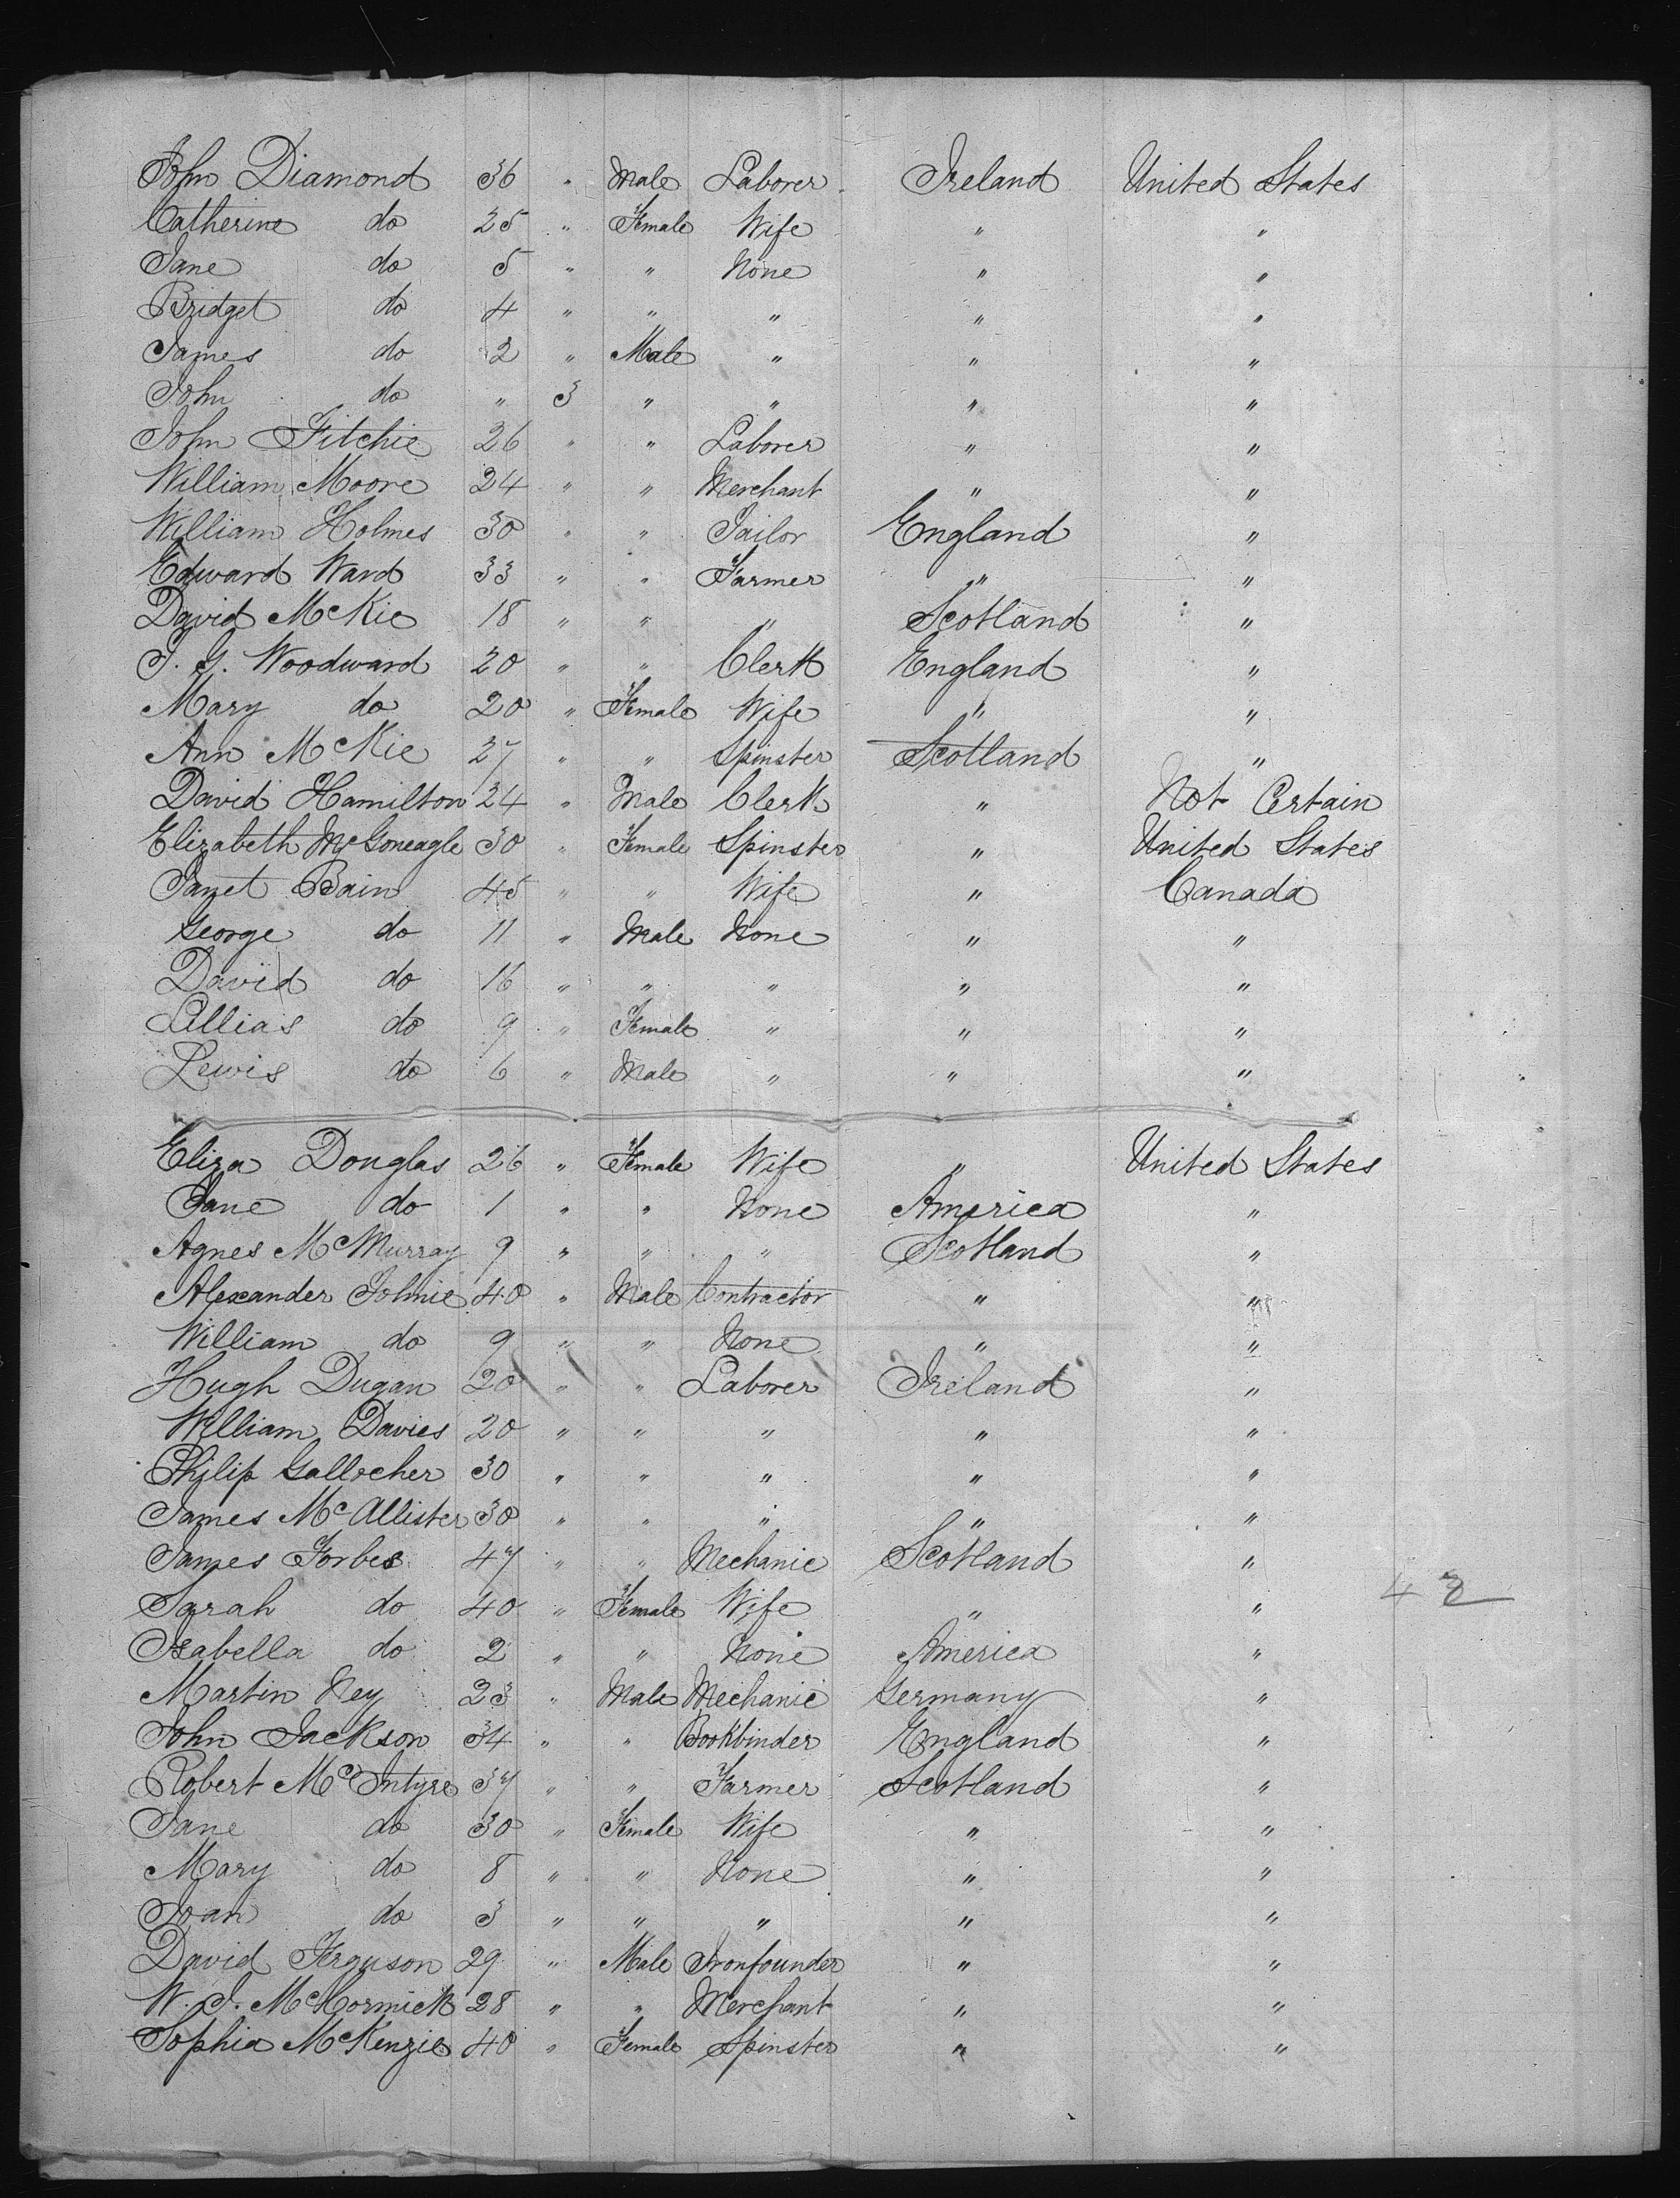 John Diamond 36 " Male Laborer Ireland United States
Catherine do 25 " Female Wife " "
Jane do 5 " " None " "
Bridget do 4 " " " " "
James do 2 " Male " " "
John do " 3 " " " "
John Fitchie 26 " " Laborer " "
William Moore 24 " " Merchant " "
William Holmes 30 " " Tailor England "
Edward Ward 33 " " Farmer " "
David McKie 18 " " " Scotland "
J. G. Woodward 20 " " Clerk England "
Mary do 20 " Female Wife " "
Ann McKie 27 " " Spinster Scotland "
David Hamilton 24 " Male Clerk " Not Certain
Elizabeth McGoneagle 30 " Female Spinster " United States
Janet Bain 45 " " Wife " Canada
George do 11 " Male None " "
David do 16 " " " " "
Lillias do 9 " Female " " "
Lewis do 6 " Male " " "
Eliza Douglas 26 " Female Wife " United States
Jane do 1 " " None America "
Agnes McMurray 9 " " " Scotland "
Alexander Tolmie 40 " Male Contractor " "
William do 9 " " None " "
Hugh Dugan 20 " " Laborer Ireland "
William Davies 20 " " " " "
Philip Gallocher 30 " " " " "
James McAllister 30 " " " " "
James Forbes 47 " " Mechanic Scotland "
Sarah do 40 " Female Wife " " 42
Isabella do 2 " " None America "
Martin Ney 23 " Male Mechanic Germany "
John Jackson 34 " " Bookbinder England "
Robert McIntyre 37 " " Farmer Scotland "
Jane do 30 " Female Wife " "
Mary do 8 " " None " "
Joan do 3 " " " " "
David Ferguson 29 " Male Ironfounder " "
W. J. McCormick 28 " " Merchant " "
Sophia McKenzie 40 " Female Spinster " "